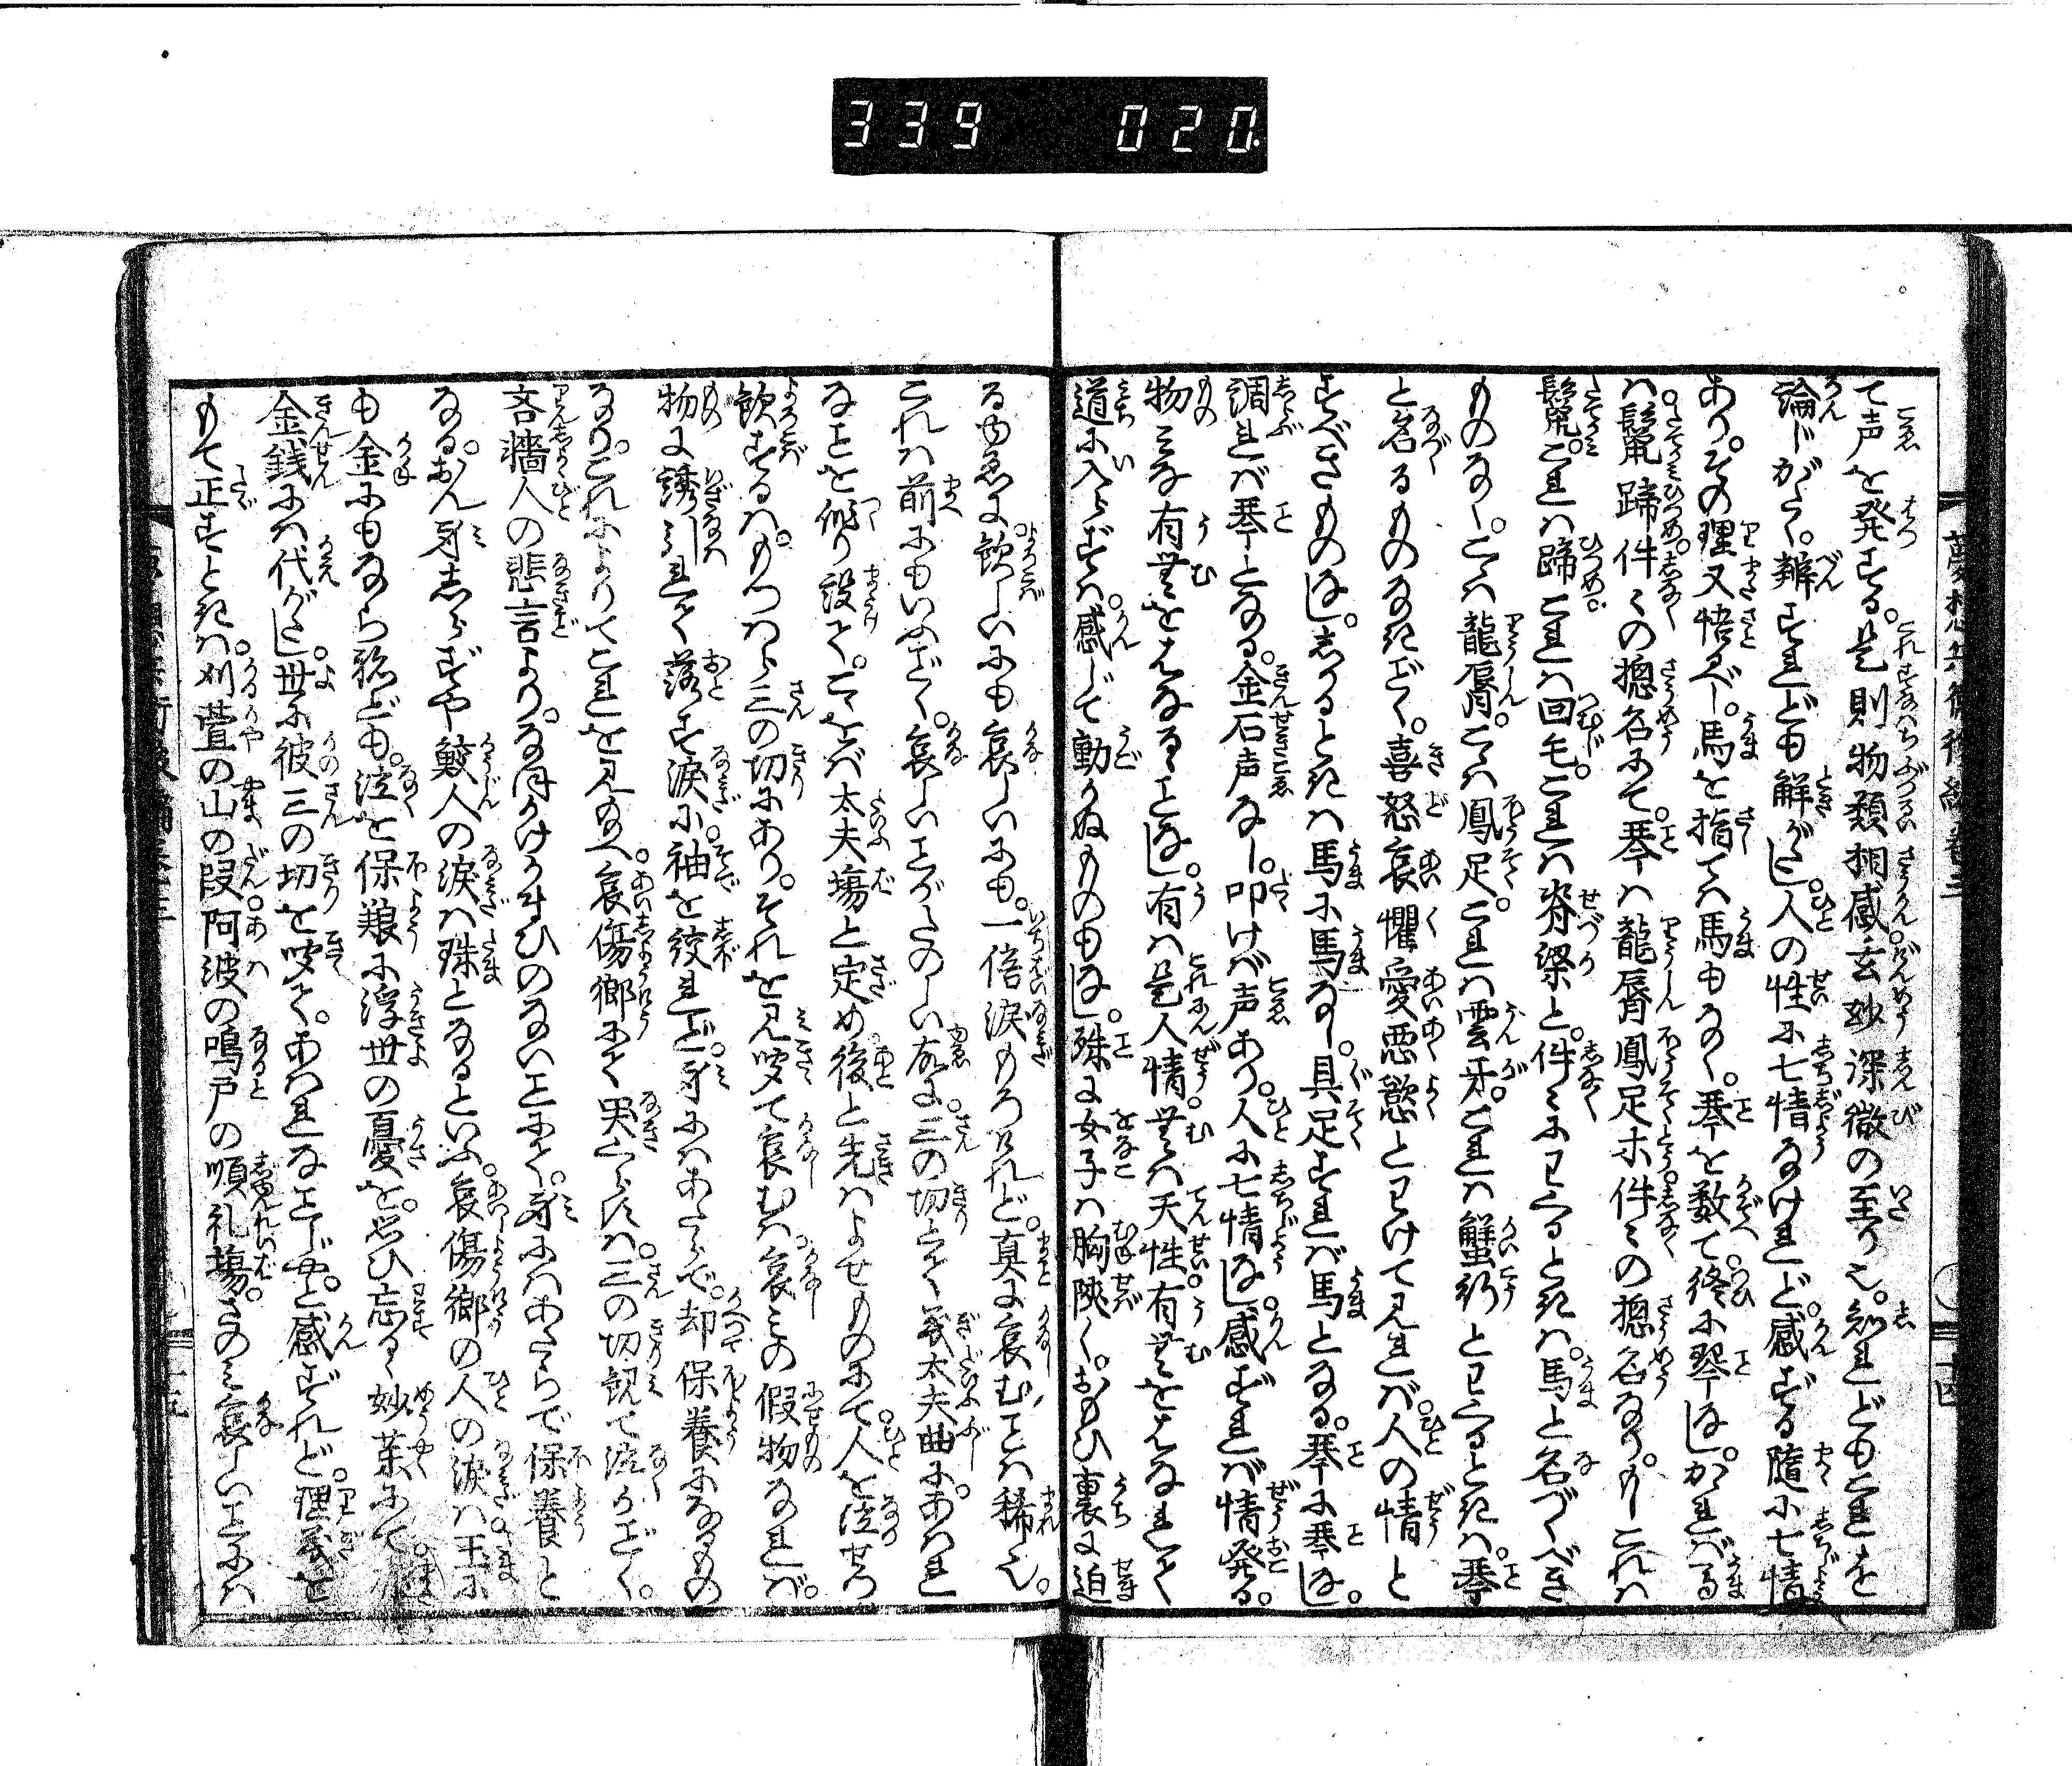 339 020
夢想兵衛後編巻三
て声を発する。是則物類相感玄妙深微の至り也。知れどもこれを
論じがたく。辯ずれども解がたし。人の性に七情なけれど。感ずる随に七情
あり。その理又悟べし。馬を指ては馬もなく。琴を数て終に琴なし。かゝれば馬
は。鬣蹄件々の摠名にて。琴は龍唇鳳足木件々の摠名なり。もしこれは
鬣。これは蹄これは回毛。これは脊梁と。件々にわくるときは。馬と名づくべき
ものなし。こは龍唇。こは鳳足。これは雲牙。これは蟹行とわくるときは。琴
と名るものなきごとく。喜怒哀懼愛悪慾とわけて見れば。人の情と
すべきものなし。しかるときは馬に馬なし。具足すれば馬となる。琴に琴なし。
調れば琴となる。金石声なし。叩けば声あり。人に七情なし。感ずれば情発る。
物みな有無をはなるゝことなし。有は是人情。無は天性。有無をはなれて
道に入らずは。感じて動かぬものもなし。殊に女子は胸陜く。おもひ裏に迫
るゆゑに。歓しいにも哀しいにも。一倍涙もろけれど。真に哀むことは稀也。
これは前にもいふごとく。哀しいことがたのしい故に。三の切とて義太夫曲に。あはれ
なことを作り設て。こゝをば太夫場と定め。後と先はよせものにて。人を泣せつ
歓するは。もつはら三の切にあり。それを見聞て哀むは。哀みの假物なれば。
物に誘引れて落す涙に。袖を絞れど。身にはあたらで。却保養になるもの
なり。これによりてこれを見れば。哀傷郷にて哭くらすは。三の切観て泣くがごとく。
吝嗇人の悲言より。なほかけかまひのないことにて。身にはあたらで保養と
なる。おん身しらずや鮫人の涙は珠となるといふ。哀傷郷の人の涙は玉に
も金にもならねども。泣を保養に浮世の憂を。思ひ忘るゝ妙薬にて
金銭には代がたし。世に彼三の切を聞て。あはれなことじやと感ずれど。理義を
もて正すときは。刈萱の山の段。阿波の鳴戸の順礼場。さのみ哀しいことには